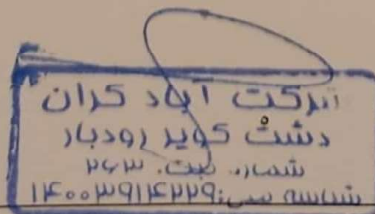 شرکت آباد گران
دشت کویر رودبار
شماره ثبت: ۲۶۳
شناسه ملی: ۱۴۰۰۳۹۱۴۲۲۹